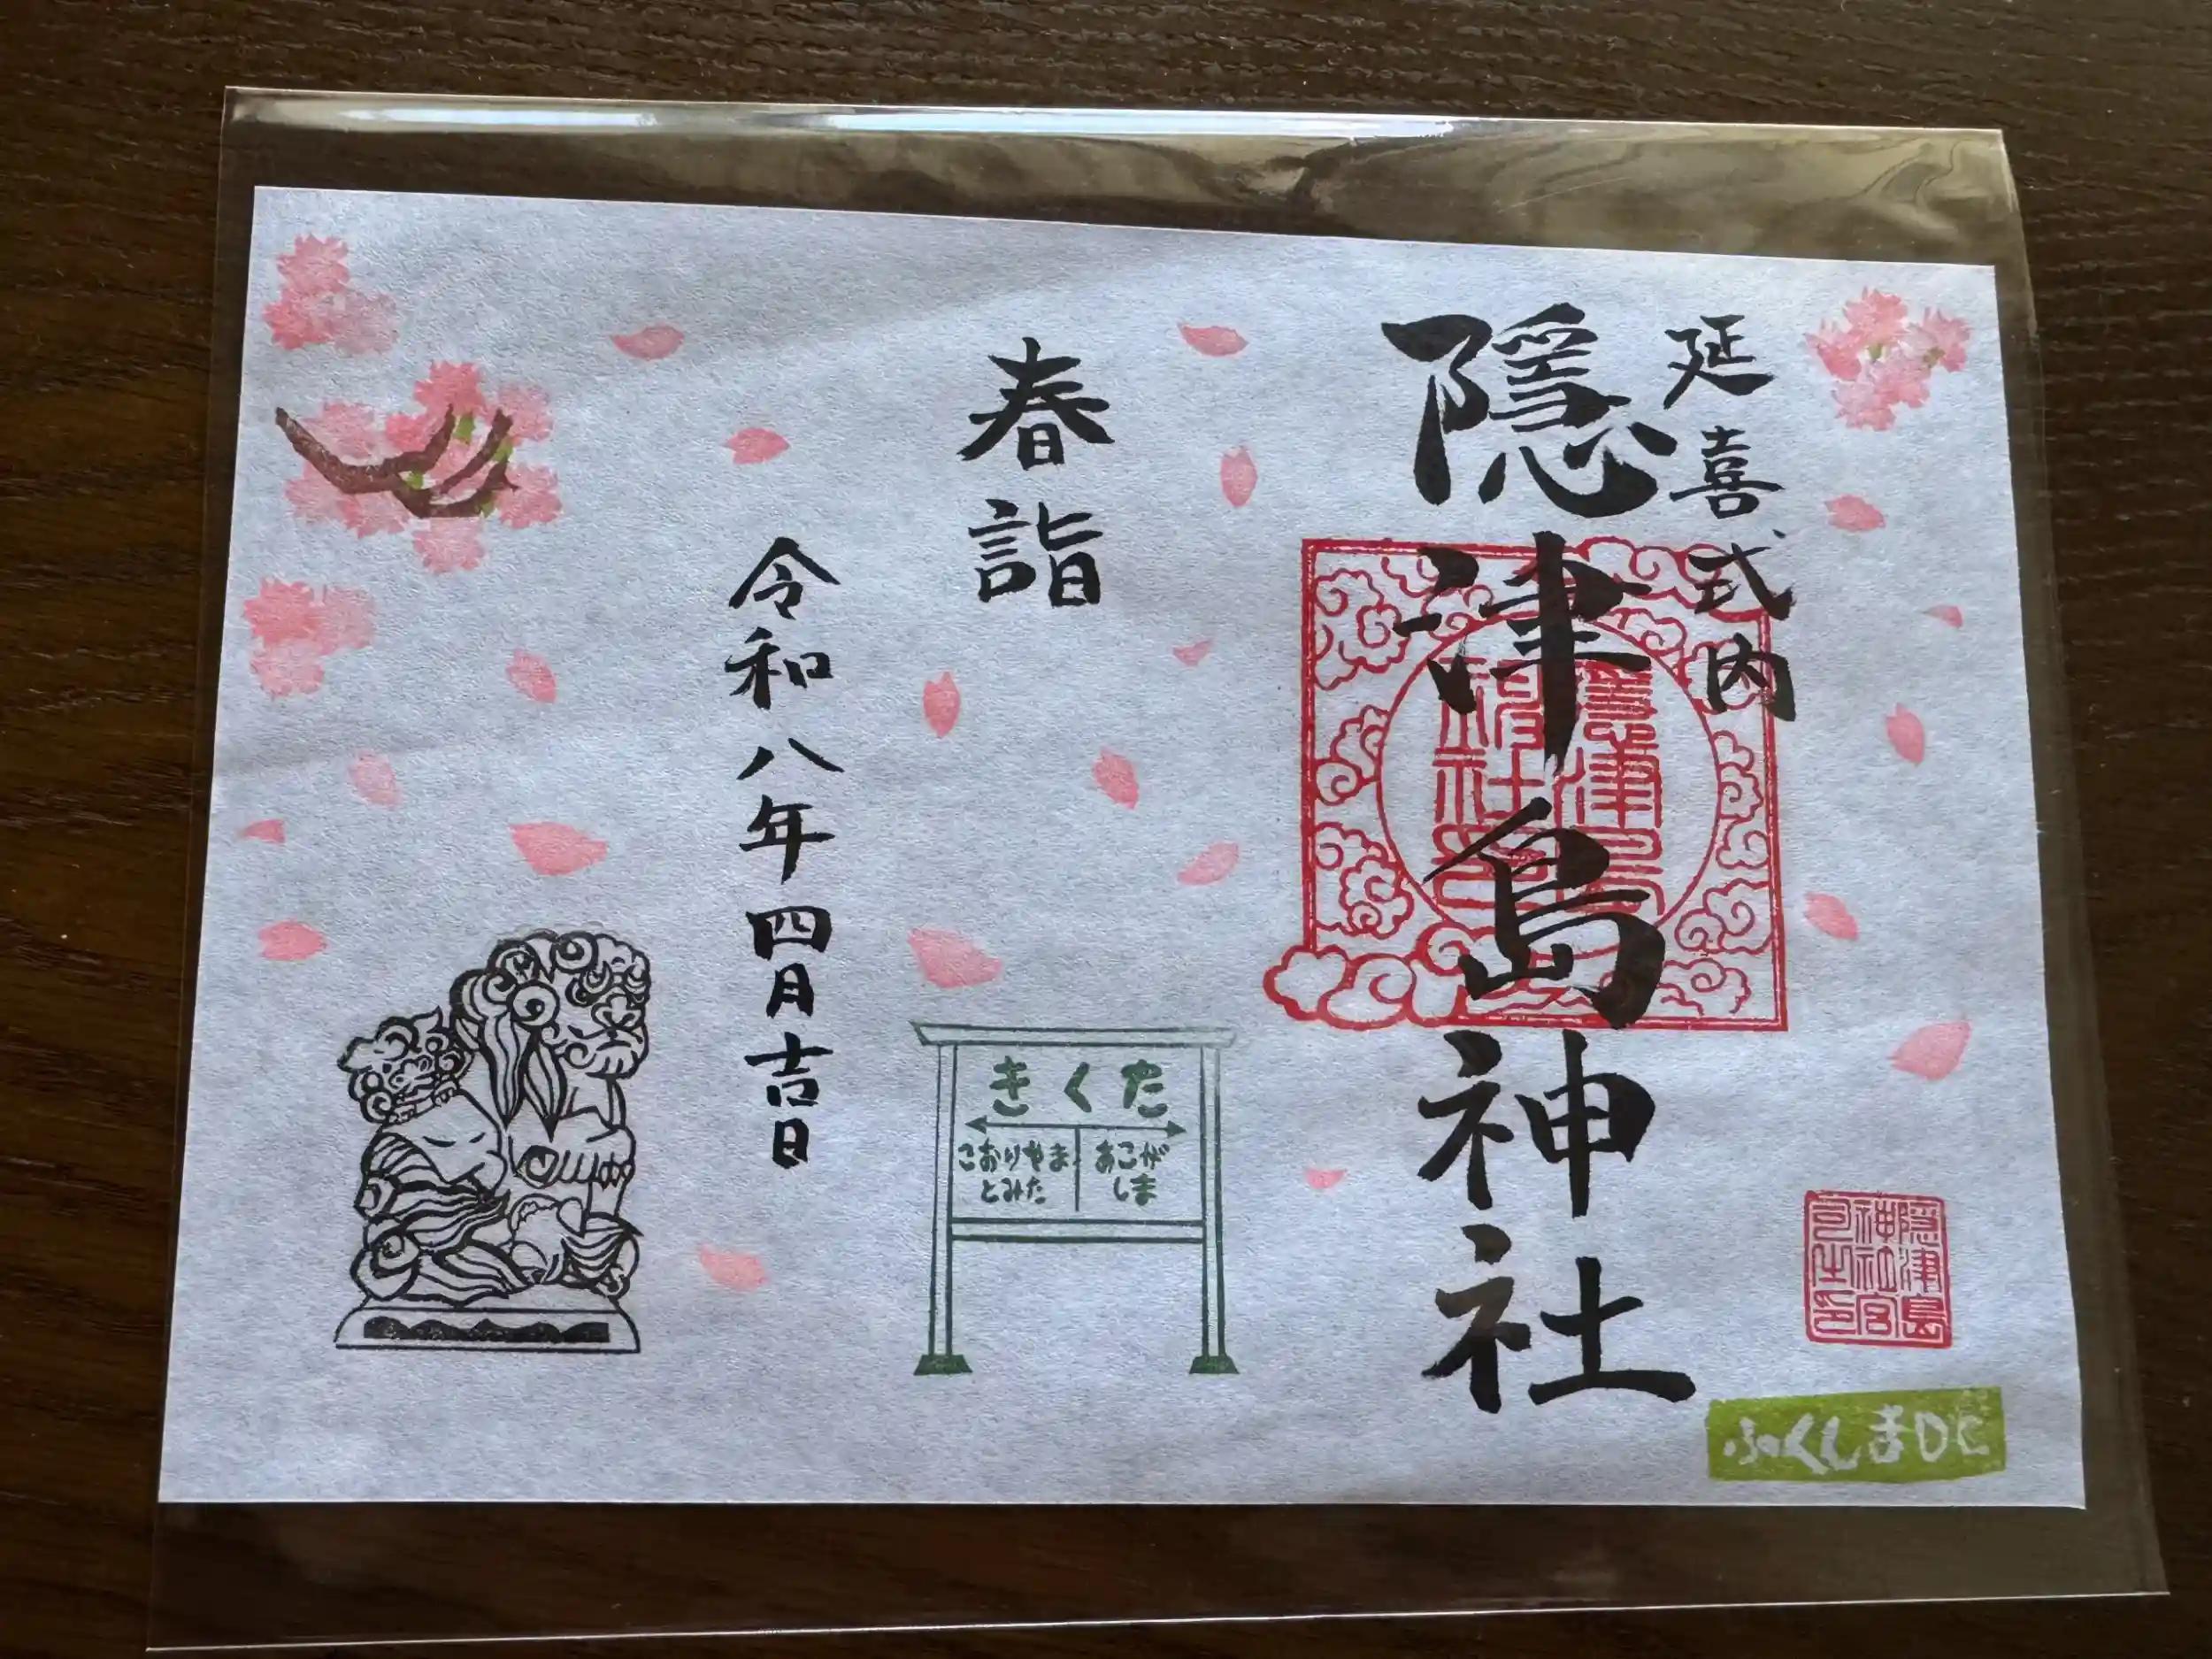 延喜式内
隠津島神社
春詣
令和八年四月吉日
きくた
こおりやま
とみた
あこが
しま
隠津島
神社宮
ふくしまDC